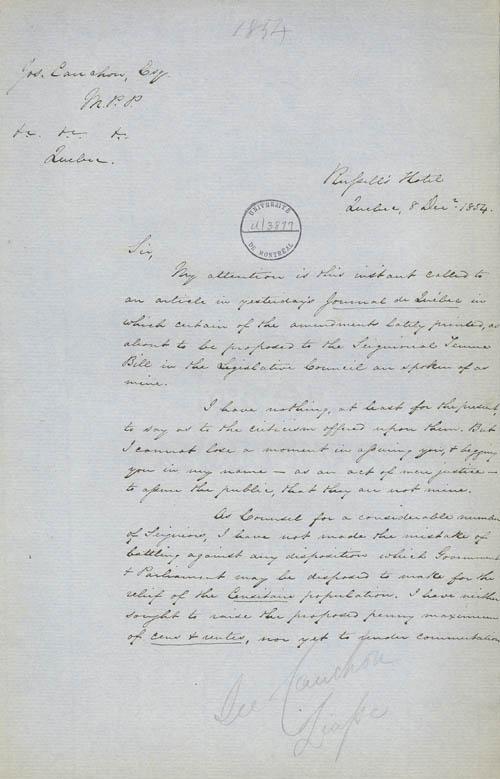 1854
Jos. Cauchon, Esq.
M.P.P.
&c. &c. &c.
Quebec.
Russell's Hotel
Quebec, 8 Decr. 1854.
UNIVERSITÉ
U/3877
DE MONTRÉAL
Sir,
My attention is this instant called to
an article in yesterday's Journal de Québec in
which certain of the amendments lately printed, as
about to be proposed to the Seigniorial Tenure
Bill in the Legislative Council are spoken of as
mine.
I have nothing, at least for the present,
to say as to the criticism offered upon them. But
I cannot lose a moment in assuring you, & begging
you in my name — as an act of mere justice —
to assure the public, that they are not mine.
As Counsel for a considerable number
of Seigniors, I have not made the mistake of
battling against any disposition which Government
& Parliament may be disposed to make for the
relief of the Censitaire population. I have neither
sought to raise the proposed penny maximum
of cens & rentes, nor yet to render commutation
Cauchon